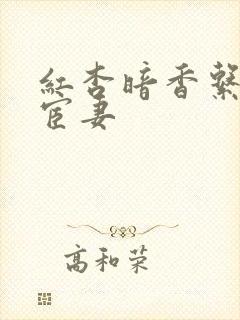 紅杏暗香繫
宦妻
高和荣